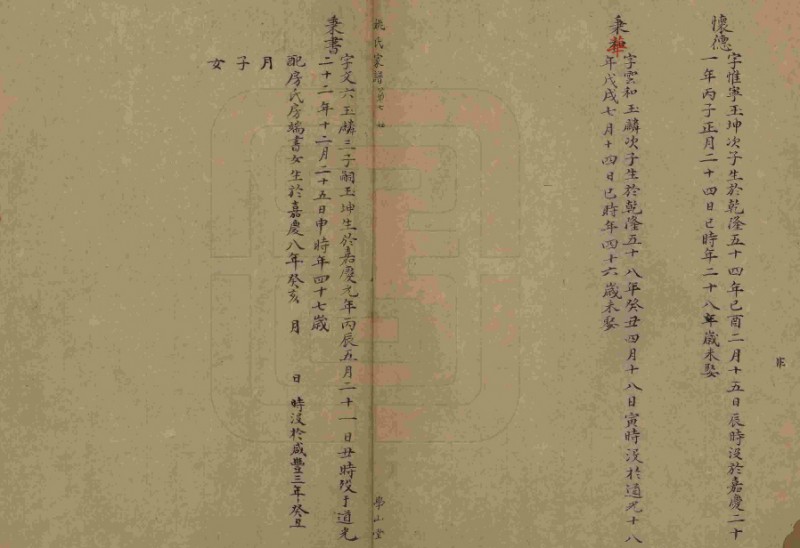 懷德
字惟寧玉坤次子生於乾隆五十四年己酉二月十五日辰時沒於嘉慶二十
一年丙子正月二十四日巳時年二十八年歲未娶
秉華
字雲和玉麟次子生於乾隆五十八年癸丑四月十八日寅時沒於道光十八
年戊戌七月十四日巳時年四十六歲未娶
氏家譜
堂
秉書
字文六玉麟三子嗣玉坤生於嘉慶元年丙辰五月二十一日丑時歿于道光
二十二年十二月二十五日申時年四十七歲
配房氏房端書女生於嘉慶八年癸亥 月 日 時沒於咸豐三年癸丑
月
子
女